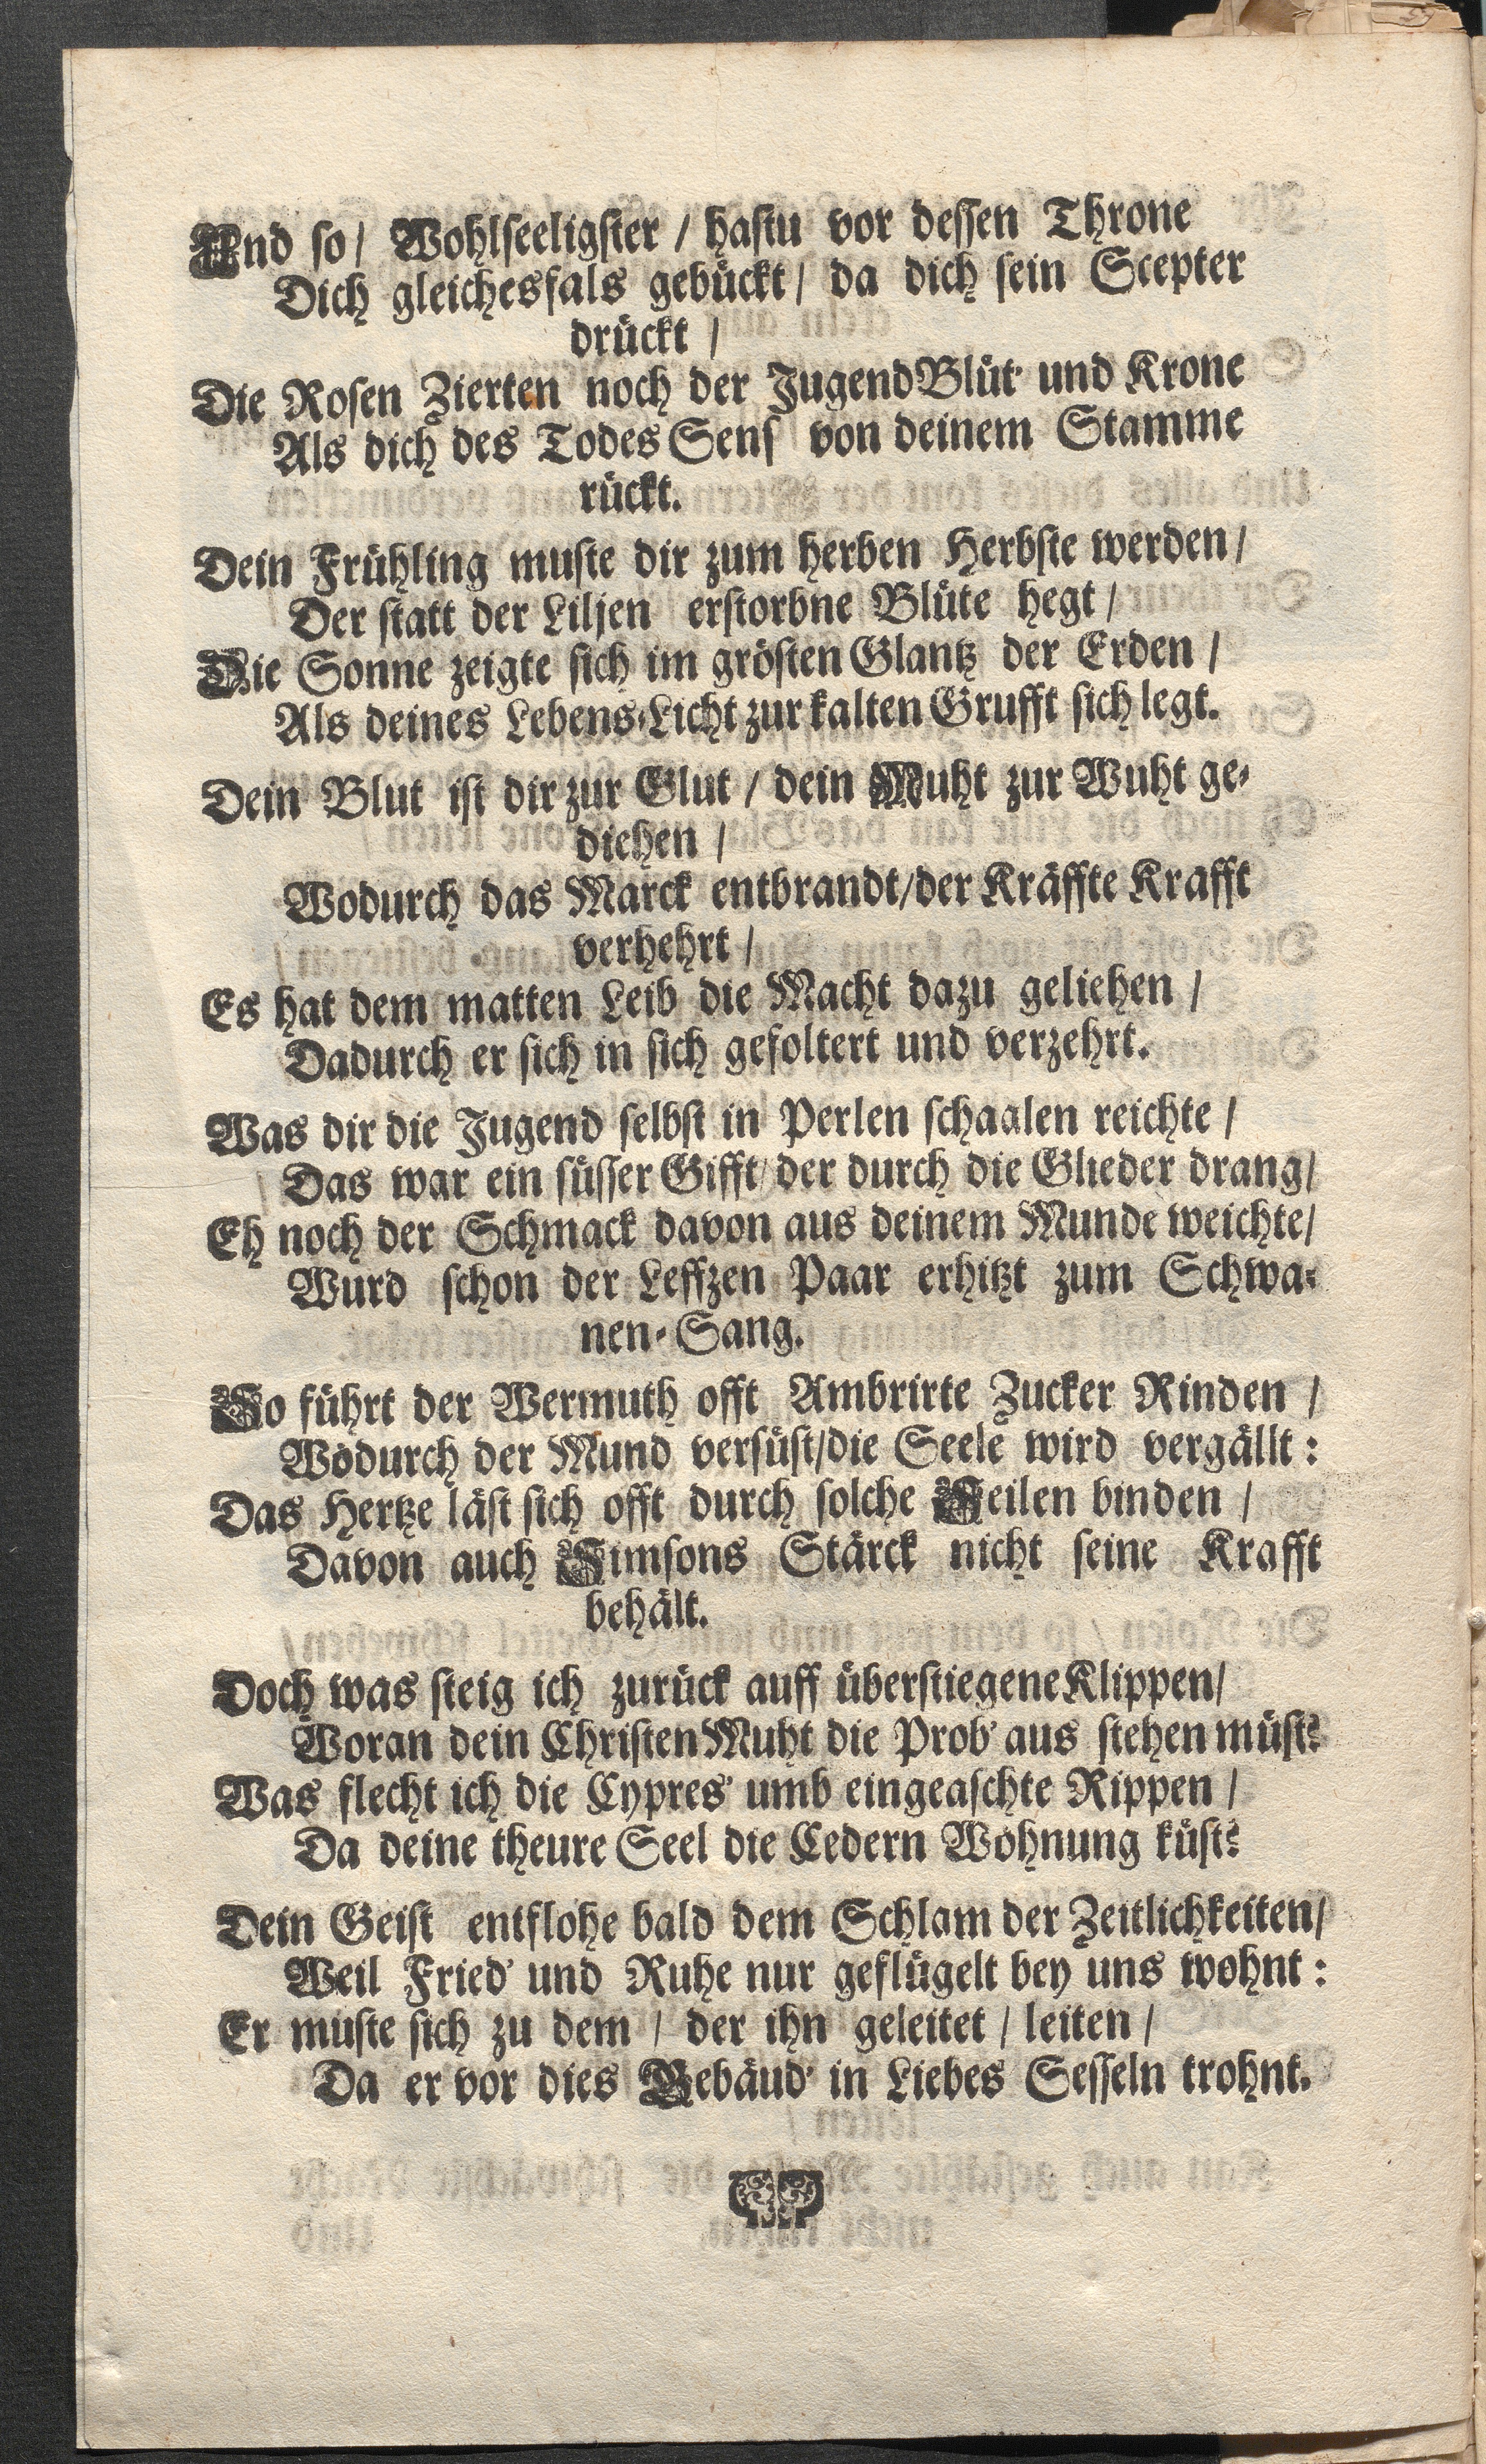 Und so/ Wohlseeligster / hastu vor dessen Throne
Dich gleichesfals gebückt/ da dich sein Scepter
drückt /
Die Rosen Zierten noch der Jugend Blüt' und Krone
Als dich des Todes Sens von deinem Stamme
rückt.
Dein Frühling muste dir zum herben Herbste werden/
Der statt der Liljen erstorbne Blüte hegt/
Die Sonne zeigte sich im grösten Glantz der Erden /
Als deines Lebens-Licht zur kalten Grufft sich legt.
Dein Blut ist dir zur Glut / dein Muht zur Wuht ge-
diehen /
Wodurch das Marck entbrandt/der Kräffte Krafft
verhehrt /
Es hat dem matten Leib die Macht dazu geliehen /
Dadurch er sich in sich gefoltert und verzehrt.
Was dir die Jugend selbst in Perlen schaalen reichte /
Das war ein süsser Gifft/ der durch die Glieder drang/
Eh noch der Schmack davon aus deinem Munde weichte/
Wurd schon der Leffzen Paar erhitzt zum Schwa-
nen-Sang.
So führt der Wermuth offt Ambrirte Zucker Rinden /
Wodurch der Mund versüst/die Seele wird vergällt:
Das Hertze läst sich offt durch solche Seilen binden /
Davon auch Simsons Stärck nicht seine Krafft
behält.
Doch was steig ich zurück auff überstiegene Klippen/
Woran dein Christen Muht die Prob' aus stehen müst?
Was flecht ich die Cypres' umb eingeaschte Rippen /
Da deine theure Seel die Cedern Wohnung küst?
Dein Geist entflohe bald dem Schlam der Zeitlichkeiten/
Weil Fried' und Ruhe nur geflügelt bey uns wohnt:
Er muste sich zu dem / der ihn geleitet / leiten /
Da er vor dies Gebäud' in Liebes Sesseln trohnt.